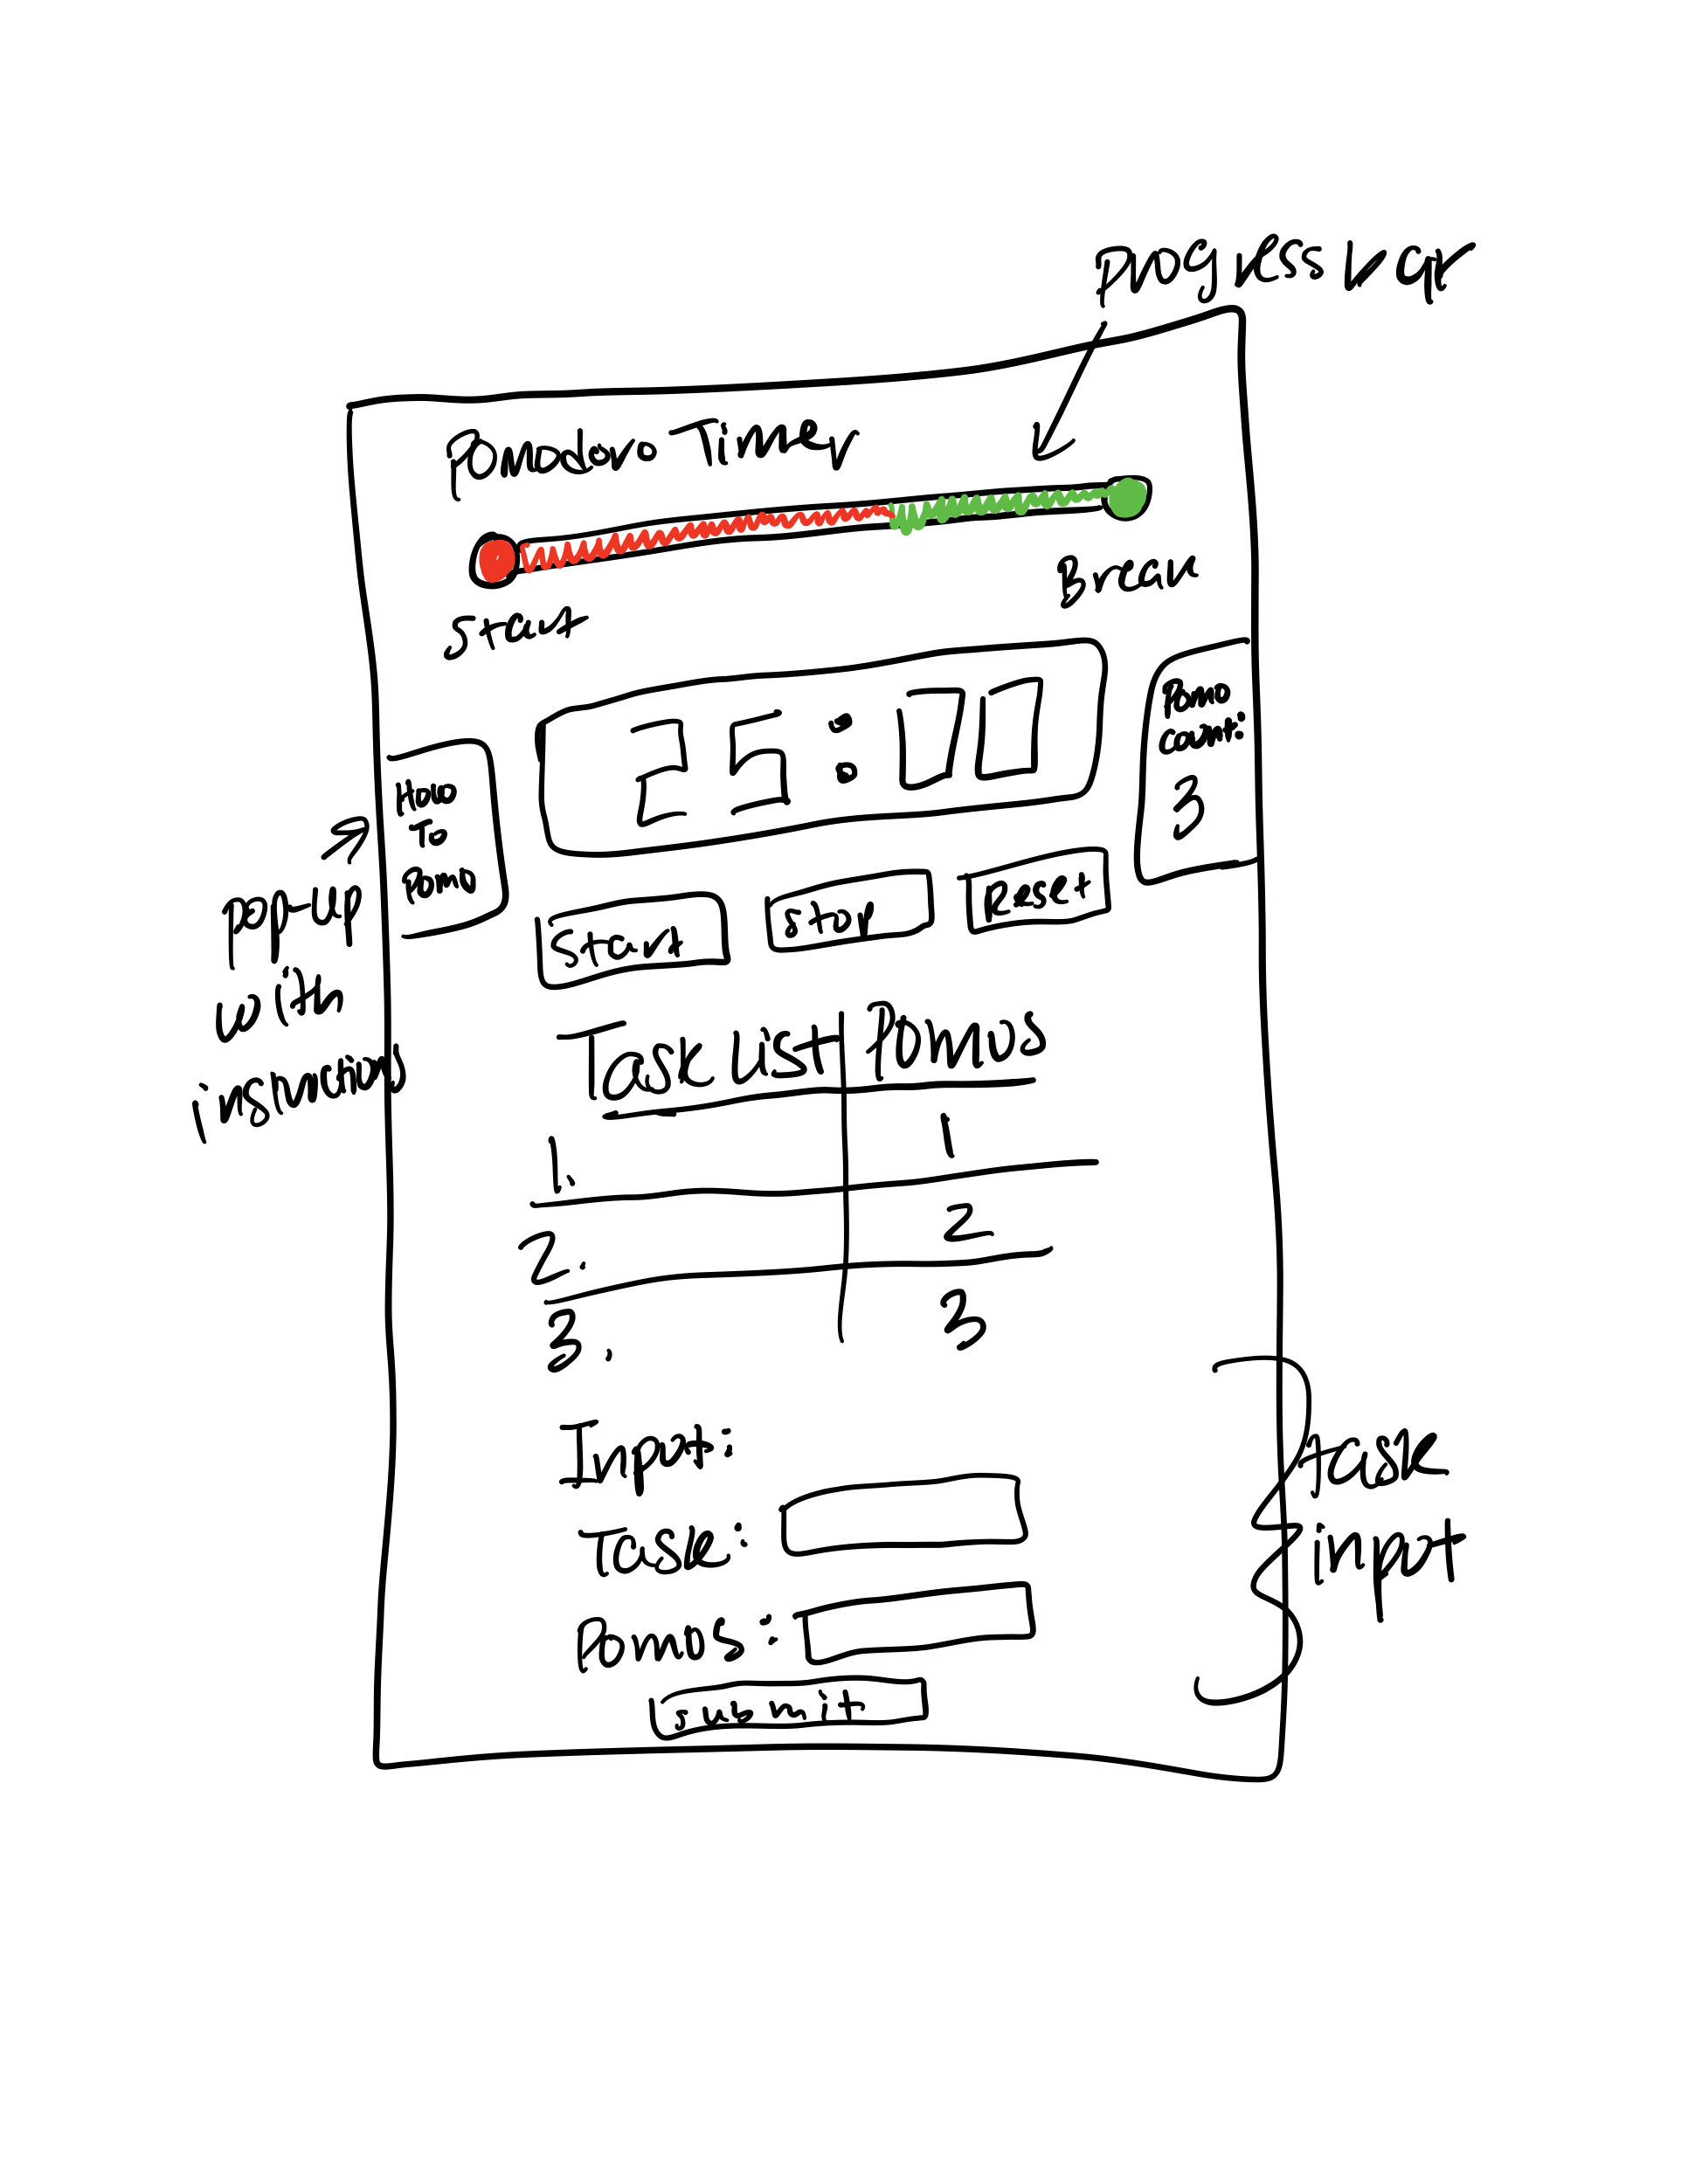 progress bar
Pomodoro Timer
Start
Break
25:00
Pomo
count:
3
How
To
Pomo
pop-up
with
instructions
Start
stop
Reset
Task List
Pomos
1.
1
2.
2
3.
3
Input:
Task:
Pomos:
submit
task
input